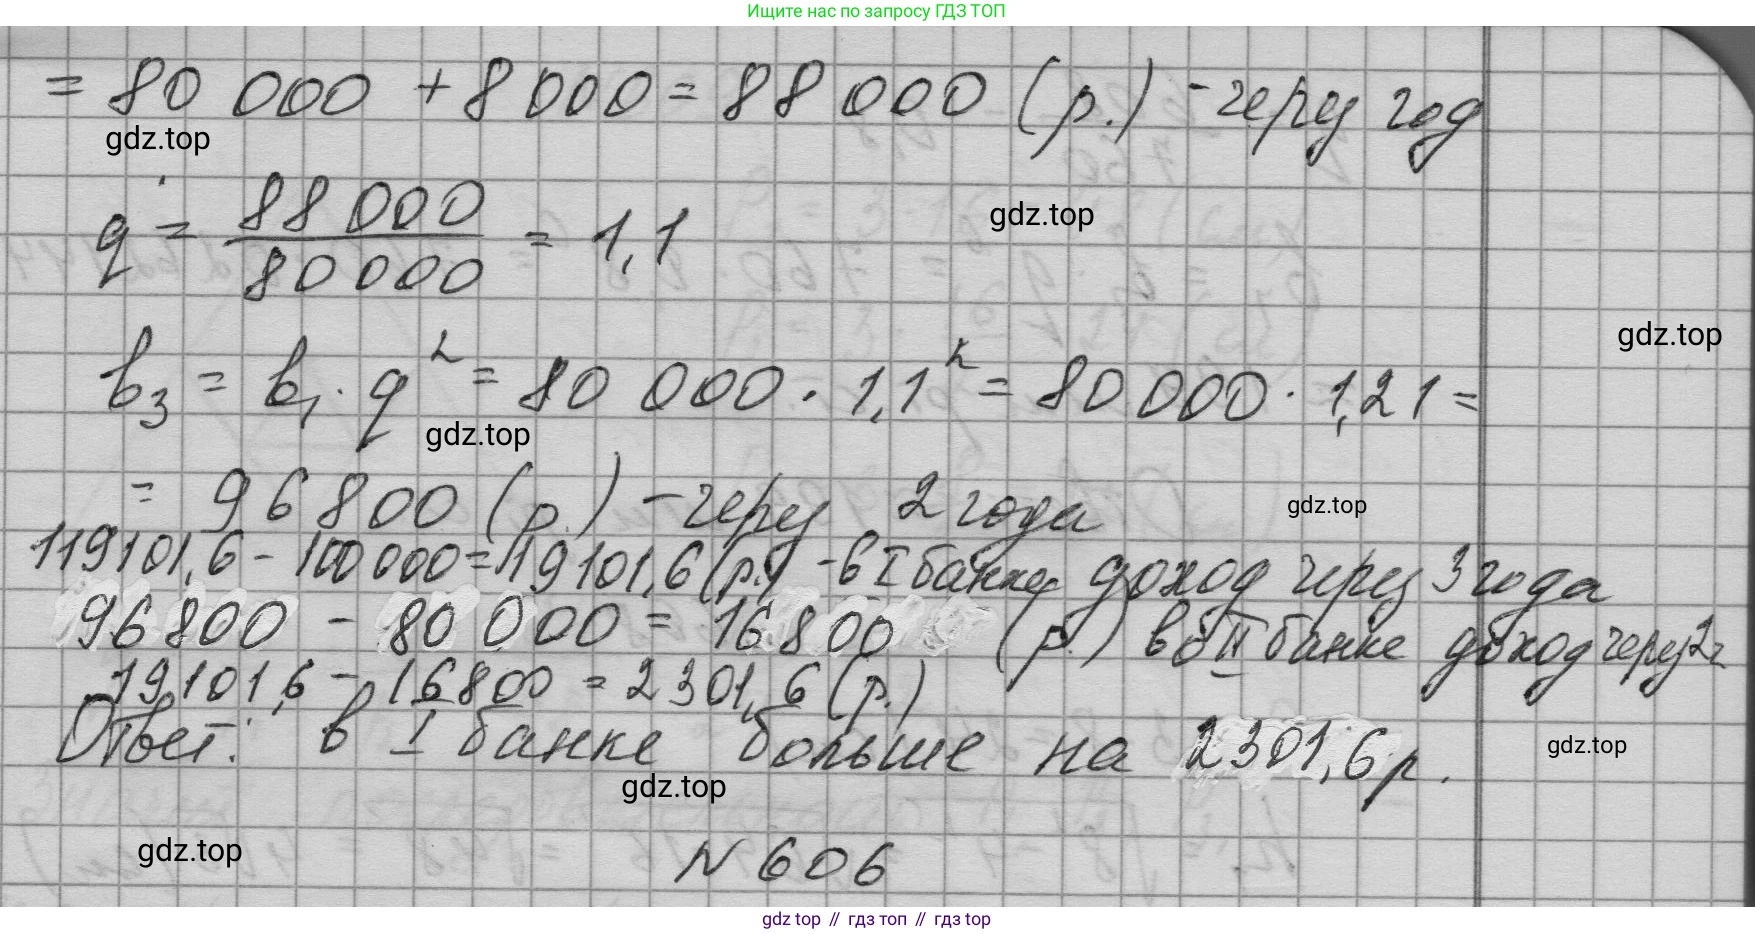 Ищите нас по запросу ГДЗ ТОП
= 80 000 + 8 000 = 88 000 (р.) - через год
gdz.top
q = 88 000 / 80 000 = 1,1
gdz.top
gdz.top
b₃ = b₁ · q² = 80 000 · 1,1² = 80 000 · 1,21 =
gdz.top
= 96 800 (р.) - через 2 года
gdz.top
119101,6 - 100 000 = 19101,6 (р.) - в I банке доход через 3 года
96 800 - 80 000 = 16 800 (р.) во II банке доход через 2 г
19101,6 - 16800 = 2301,6 (р.)
Ответ: в I банке больше на 2301,6 р.
gdz.top
gdz.top
gdz.top
N 606
gdz top // гдз топ // гдз top